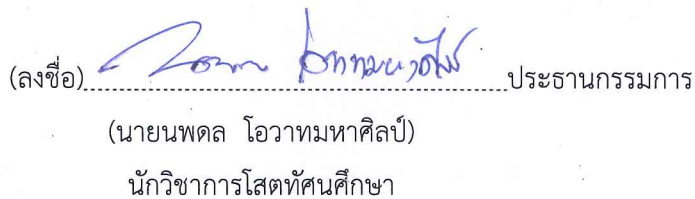 (ลงชื่อ)........................................................ประธานกรรมการ
(นายนพดล โอวาทมหาศิลป์)
นักวิชาการโสตทัศนศึกษา